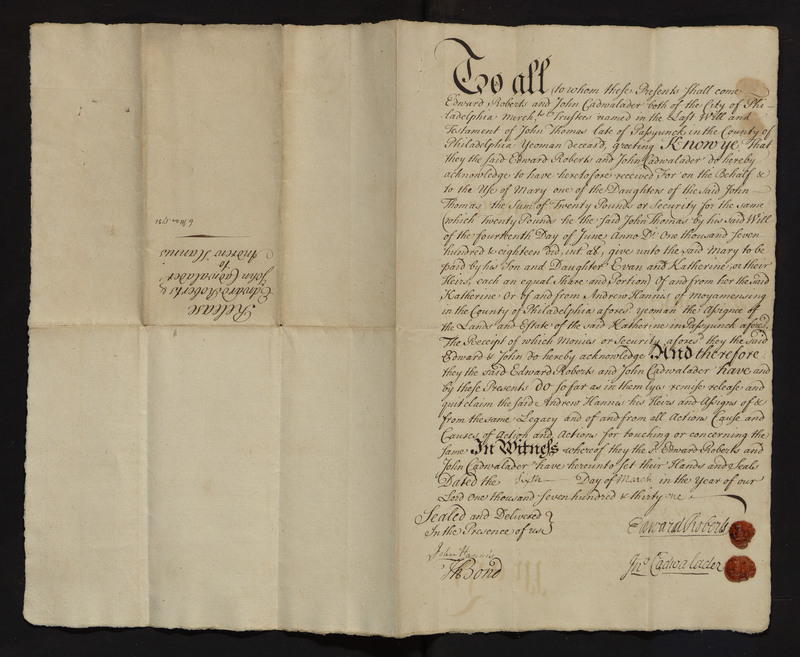 To all to whom these Presents shall come
Edward Roberts and John Cadwalader both of the City of Phi-
ladelphia Merch.ts Trustees named in the Last Will and
Testament of John Thomas late of Passyunck in the County of
Philadelphia Yeoman deceas'd, greeting Know ye, That
they the said Edward Roberts and John Cadwalader do hereby
acknowledge to have heretofore received For on the Behalf &
to the Use of Mary one of the Daughters of the said John
Thomas the Sum of Twenty Pounds or Security for the same
(which Twenty Pounds he the said John Thomas by his said Will
of the fourteenth Day of June Anno Di. One thousand seven
hundred & eighteen did, int. al., give unto the said Mary to be
paid by his Son and Daughter Evan and Katherine, or their
Heirs, each an equal Share and Portion) Of and from her the said
Katherine Or of and from Andrew Hannis of Moyamensing
in the County of Philadelphia afores.d Yeoman the Assignee of
the Lands and Estate of the said Katherine in Passyunck afores.d
The Receipt of which Monies or Security afores.d they the said
Edward & John do hereby acknowledge And therefore
they the said Edward Roberts and John Cadwalader have and
by these Presents Do so far as in them lyes remise release and
quit claim the said Andrew Hannis his Heirs and Assigns of &
from the same Legacy and of and from all Actions Cause and
Causes of Action and Actions for touching or concerning the
same In Witness whereof they the s.d Edward Roberts and
John Cadwalader have hereunto set their Hands and Seals
Dated the Sixth Day of March in the Year of our
Lord One thousand seven hundred & thirty one
Sealed and Delivered
In the Presence of us
John Hannis
Th Bond
Edward Roberts
Jno. Cadwalader
Release
Edward Roberts &
John Cadwalader
to
Andrew Hannis
6 Mar. 1731